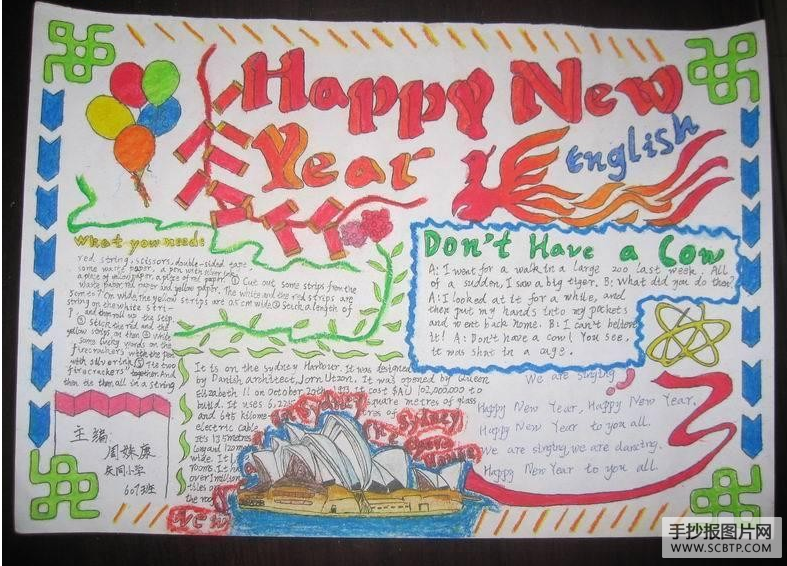 Happy New
Year
English
What you need:
red string, scissors, double-sided tape
some white paper, a pen with silver ink,
a piece of yellow paper, a piece of red paper. ① Cut out some strips from the
white paper, red paper and yellow paper. The white and the red strips are
7cm wide, the yellow strips are 0.5cm wide. ② Stick a length of
string on the white stri-
and then roll up the strip
③ Stick the red and the
yellow strips on them. ④ Write
some lucky words on the
firecrackers with the pen
with silver ink. ⑤ Tie two
firecrackers together. And
then tie them all in a string
Don't Have a Cow
A: I went for a walk in a large zoo last week. All
of a sudden, I saw a big tiger. B: What did you do then?
A: I looked at it for a while, and
then put my hands into my pockets
and went back home. B: I can't believe
it! A: Don't have a cow! You see,
it was shut in a cage.
It is on the Sydney Harbour. It was designed
by Danish architect, Jorn Utzon. It was opened by Queen
Elizabeth II on October 20th 1973. It cost $AU 102,000,000 to
build. It uses 6,225 square metres of glass
and 645 kilometres of
electric cable
It's
long and 120m
wide. It
rooms. It has
over 1 million
tiles on
the roof
Sydney
Opera
House
We are singing
Happy New Year, Happy New Year,
Happy New Year to you all.
We are singing, we are dancing.
Happy New Year to you all.
主编
周姝旗
小学
607班
手抄报图片网
WWW.SCBTP.COM